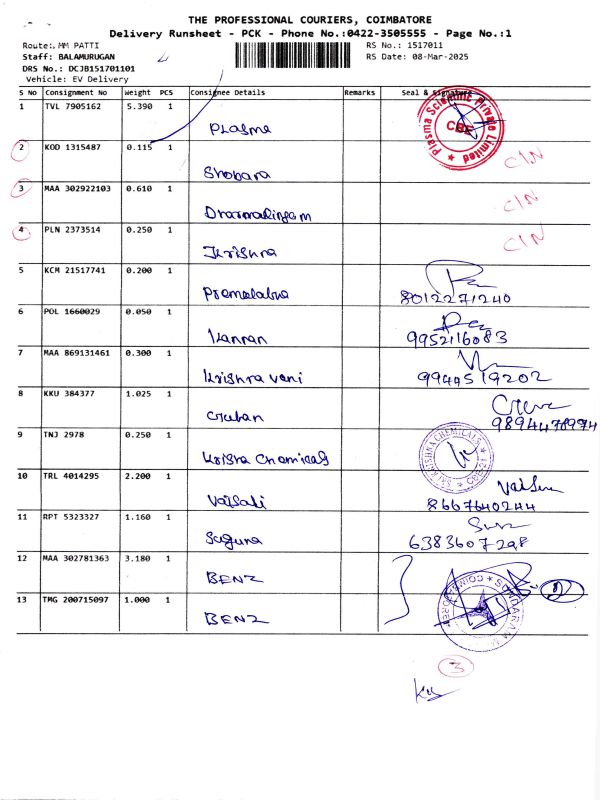 THE PROFESSIONAL COURIERS, COIMBATORE
Delivery Runsheet - PCK - Phone No.:0422-3505555 - Page No.:1
Route:. MM PATTI
RS No.: 1517011
Staff: BALAMURUGAN
RS Date: 08-Mar-2025
DRS No.: DCJB151701101
Vehicle: EV Delivery
S No Consignment No Weight PCS Consignee Details Remarks Seal & Signature
1 TVL 7905162 5.390 1
Plasma
Plasma Scientific Private Limited
CBE
2 KOD 1315487 0.115 1
Shobana
C/N
3 MAA 302922103 0.610 1
Dharmalingam
C/N
4 PLN 2373514 0.250 1
Krishna
C/N
5 KCM 21517741 0.200 1
Premalatha
8012271240
6 POL 1660029 0.050 1
Kannan
9952116083
7 MAA 869131461 0.300 1
Krishna vani
9944519202
8 KKU 384377 1.025 1
9894478974
9 TNJ 2978 0.250 1
Krishna Chemicals
SRI KRISHNA CHEMICALS
10 TRL 4014295 2.200 1
Vaisali
8667640244
11 RPT 5323327 1.160 1
Suguna
6383607298
12 MAA 302781363 3.180 1
BENZ
2
13 TMG 200715097 1.000 1
BENZ
3